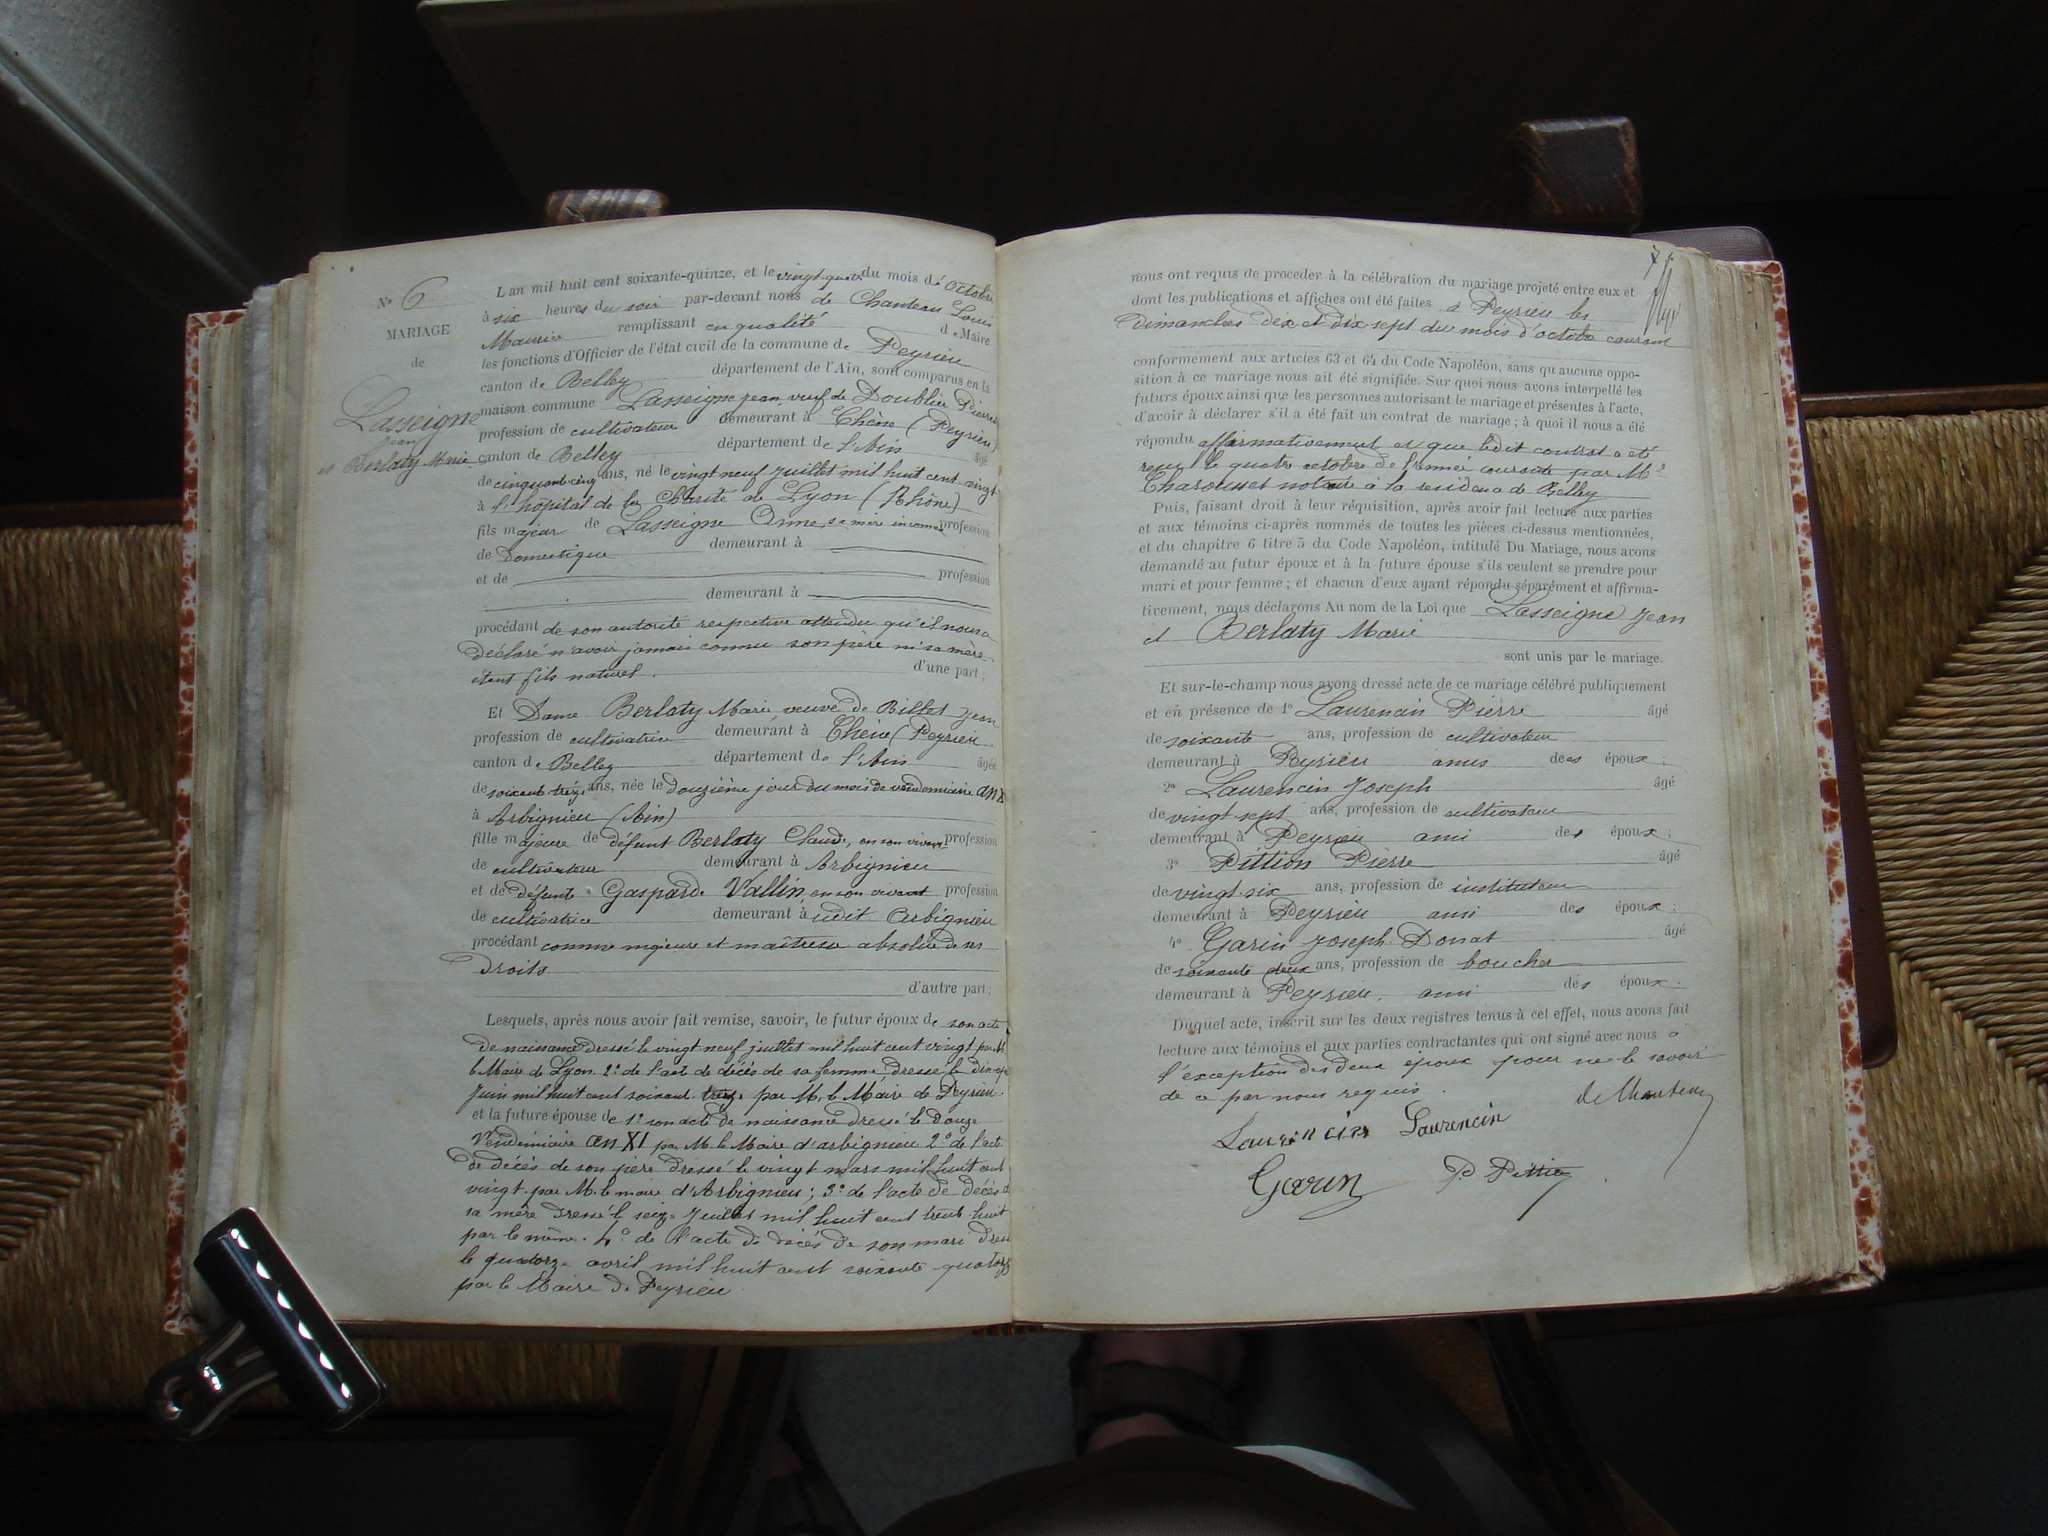 N° 6
MARIAGE
de
Lasseigne
Jean
et Berlaty Marie
L'an mil huit cent soixante-quinze, et le vingt-quatre du mois d'octobre
à six heures du soir par-devant nous de Chanteau Louis
Maurice remplissant en qualité de Maire
les fonctions d'Officier de l'état civil de la commune de Peyrieu
canton de Belley département de l'Ain, sont comparus en la
maison commune Lasseigne Jean, veuf de Doublier Pierrette
profession de cultivateur demeurant à Chêne (Peyrieu)
canton de Belley département de l'Ain âgé
de cinquante-cinq ans, né le vingt neuf juillet mil huit cent vingt
à l'hôpital de la Charité de Lyon (Rhône)
fils majeur de Lasseigne Anne, sa mère inconnue profession
de Domestique demeurant à
et de profession
demeurant à
procédant de son autorité respective attendu qu'il nous a
déclaré n'avoir jamais connu son père ni sa mère
étant fils naturel. d'une part;
Et Dame Berlaty Marie veuve de Billet Jean
profession de cultivatrice demeurant à Chêne (Peyrieu
canton de Belley département de l'Ain âgée
de soixante treize ans, née le douzième jour du mois de vendémiaire an X
à Arbignieu (Ain)
fille majeure de défunt Berlaty Claude, en son vivant profession
de cultivateur demeurant à Arbignieu
et de défunte Gasparde Vallin, en son vivant profession
de cultivatrice demeurant à udit Arbignieu
procédant comme majeure et maîtresse absolue de ses
droits
d'autre part;
Lesquels, après nous avoir fait remise, savoir, le futur époux de son acte
de naissance dressé le vingt neuf juillet mil huit cent vingt par M.
le Maire de Lyon. 2° de l'acte de décès de sa femme dressé le
Juin mil huit cent soixante treize par M. le Maire de Peyrieu
et la future épouse de 1° son acte de naissance dressé le douze
Vendémiaire an XI par M. le Maire d'arbignieu 2° de l'acte
de décès de son père dressé le vingt mars mil huit cent
vingt par M. le maire d'Arbignieu; 3° de l'acte de décès de
sa mère dressé le seize Juillet mil huit cent trente huit
par le même. 4° de l'acte de décès de son mari dressé
le quatorze avril mil huit cent soixante quatorze
par le Maire de Peyrieu
7
nous ont requis de proceder à la célébration du mariage projeté entre eux et
dont les publications et affiches ont été faites à Peyrieu les
dimanches dix et dix sept du mois d'octobre courant
conformement aux articles 63 et 64 du Code Napoléon, sans qu'aucune oppo-
sition à ce mariage nous ait été signifiée. Sur quoi nous avons interpellé les
futurs époux ainsi que les personnes autorisant le mariage et présentes à l'acte,
d'avoir à déclarer s'il a été fait un contrat de mariage; à quoi il nous a été
répondu affirmativement et que ledit contrat a été
reçu le quatre octobre de l'année courante par Me
Charousset notaire à la residence de Belley
Puis, faisant droit à leur réquisition, après avoir fait lecture aux parties
et aux témoins ci-après nommés de toutes les pièces ci-dessus mentionnées,
et du chapitre 6 litre 5 du Code Napoléon, intitulé Du Mariage, nous avons
demandé au futur époux et à la future épouse s'ils veulent se prendre pour
mari et pour femme; et chacun d'eux ayant répondu séparément et affirma-
tivement, nous déclarons Au nom de la Loi que Lasseigne Jean
et Berlaty Marie
sont unis par le mariage.
Et sur-le-champ nous avons dressé acte de ce mariage célébré publiquement
et en présence de 1° Laurencin Pierre âgé
de soixante ans, profession de cultivateur
demeurant à Peyrieu amis des époux;
2° Laurencin Joseph âgé
de vingt sept ans, profession de cultivateur
demeurant à Peyrieu ami des époux;
3° Pittion Pierre âgé
de vingt six ans, profession de instituteur
demeurant à Peyrieu ami des époux;
4° Garin Joseph Donat âgé
de soixante deux ans, profession de boucher
demeurant à Peyrieu. ami des époux.
Duquel acte, inscrit sur les deux registres tenus à cet effet, nous avons fait
lecture aux témoins et aux parties contractantes qui ont signé avec nous à
l'exception des deux époux pour ne le savoir
de ce par nous requis.
de Chanteau
Laurencin Laurencin
Garin P Pittion